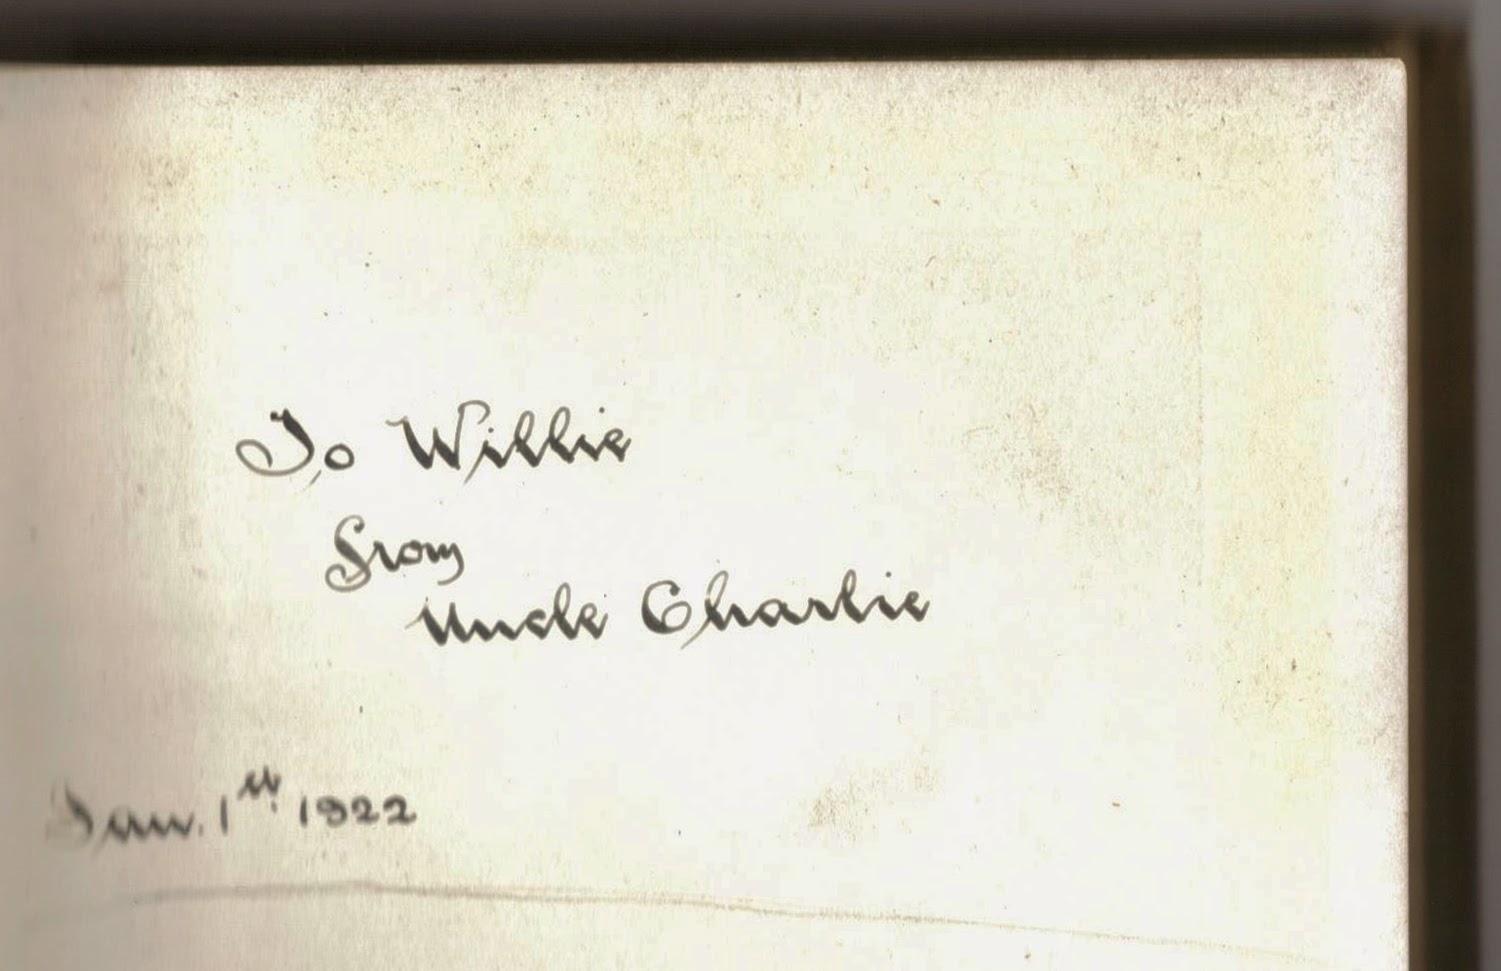 To Willie
from
Uncle Charlie
Jan. 1st. 1922